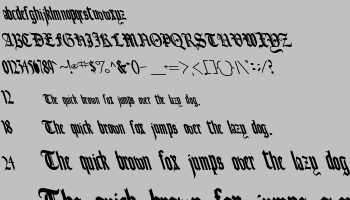 abcdefghijklmnopqrstuvwxyz
ABCDEFGHIJKLMNOPQRSTUVWXYZ
12 The quick brown fox jumps over the lazy dog.
18 The quick brown fox jumps over the lazy dog.
24 The quick brown fox jumps over the lazy dog
The quick brown fox jumps over